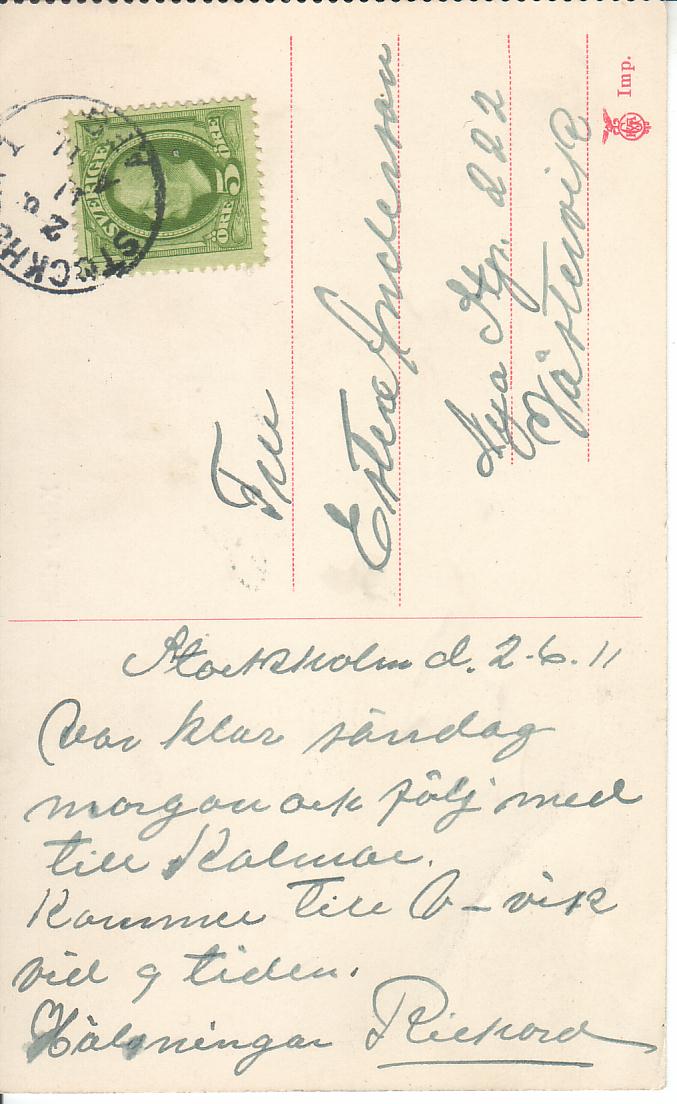 Stockholm d. 2.6.11
Var klar söndag
morgon och följ med
till Kalmar.
Kommer till V-vik
vid 9 tiden.
Hälsningar Richard
Fru
Ester Andersson
Nya Kp. 222
Västervik
Imp.
SVERIGE
5
ÖRE
FEM
STOCKHO
2 6
11